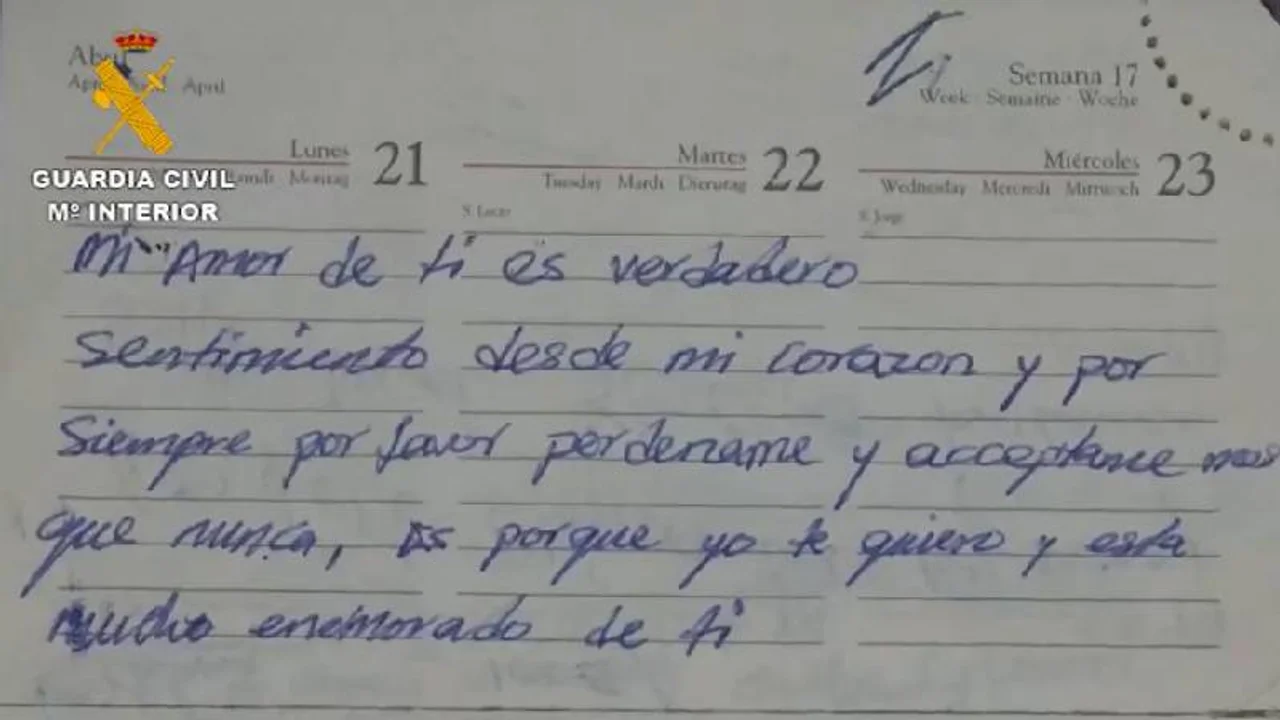 Abril
April
Semana 17
Week · Semaine · Woche
Lunes 21
Montag
Martes 22
Tuesday Mardi Dienstag
Miércoles 23
Wednesday Mercredi Mittwoch
S. Jorge
GUARDIA CIVIL
Mº INTERIOR
Mi Amor de ti es verdadero
sentimiento desde mi corazon y por
siempre por favor perdename y acceptame mas
que nunca, es porque yo te quiero y esta
mucho enemorado de ti